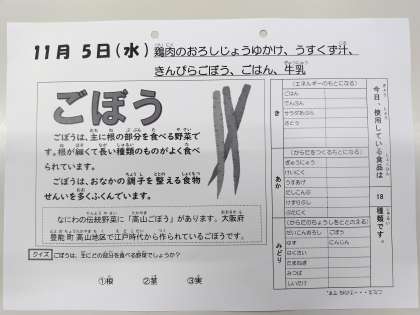 11月 5日(水) 鶏肉のおろしじょうゆかけ、うすくず汁、
きんぴらごぼう、ごはん、牛乳
ごぼう
ごぼうは、主に根の部分を食べる野菜で
す。根が細くて長い種類のものがよく食べ
られています。
ごぼうは、おなかの調子を整える食物
せんいを多くふくんでいます。
なにわの伝統野菜に「高山ごぼう」があります。大阪府
豊能町高山地区で江戸時代から作られているごぼうです。
クイズ ごぼうは、主にどの部分を食べる野菜でしょうか?
①根 ②茎 ③実
今日、使用している食品は
18
種類です。
き
(エネルギーのもとになる)
ごはん
でんぷん
サラダあぶら
さとう
あか
(からだをつくるもとになる)
ぎゅうにゅう
けいにく
うすあげ
だしこんぶ
けずりぶし
ぶたにく
みどり
(からだのちょうしをととのえる)
だいこんおろし ごぼう
ゆず にんじん
はくさい
たまねぎ
みつば
しいたけ